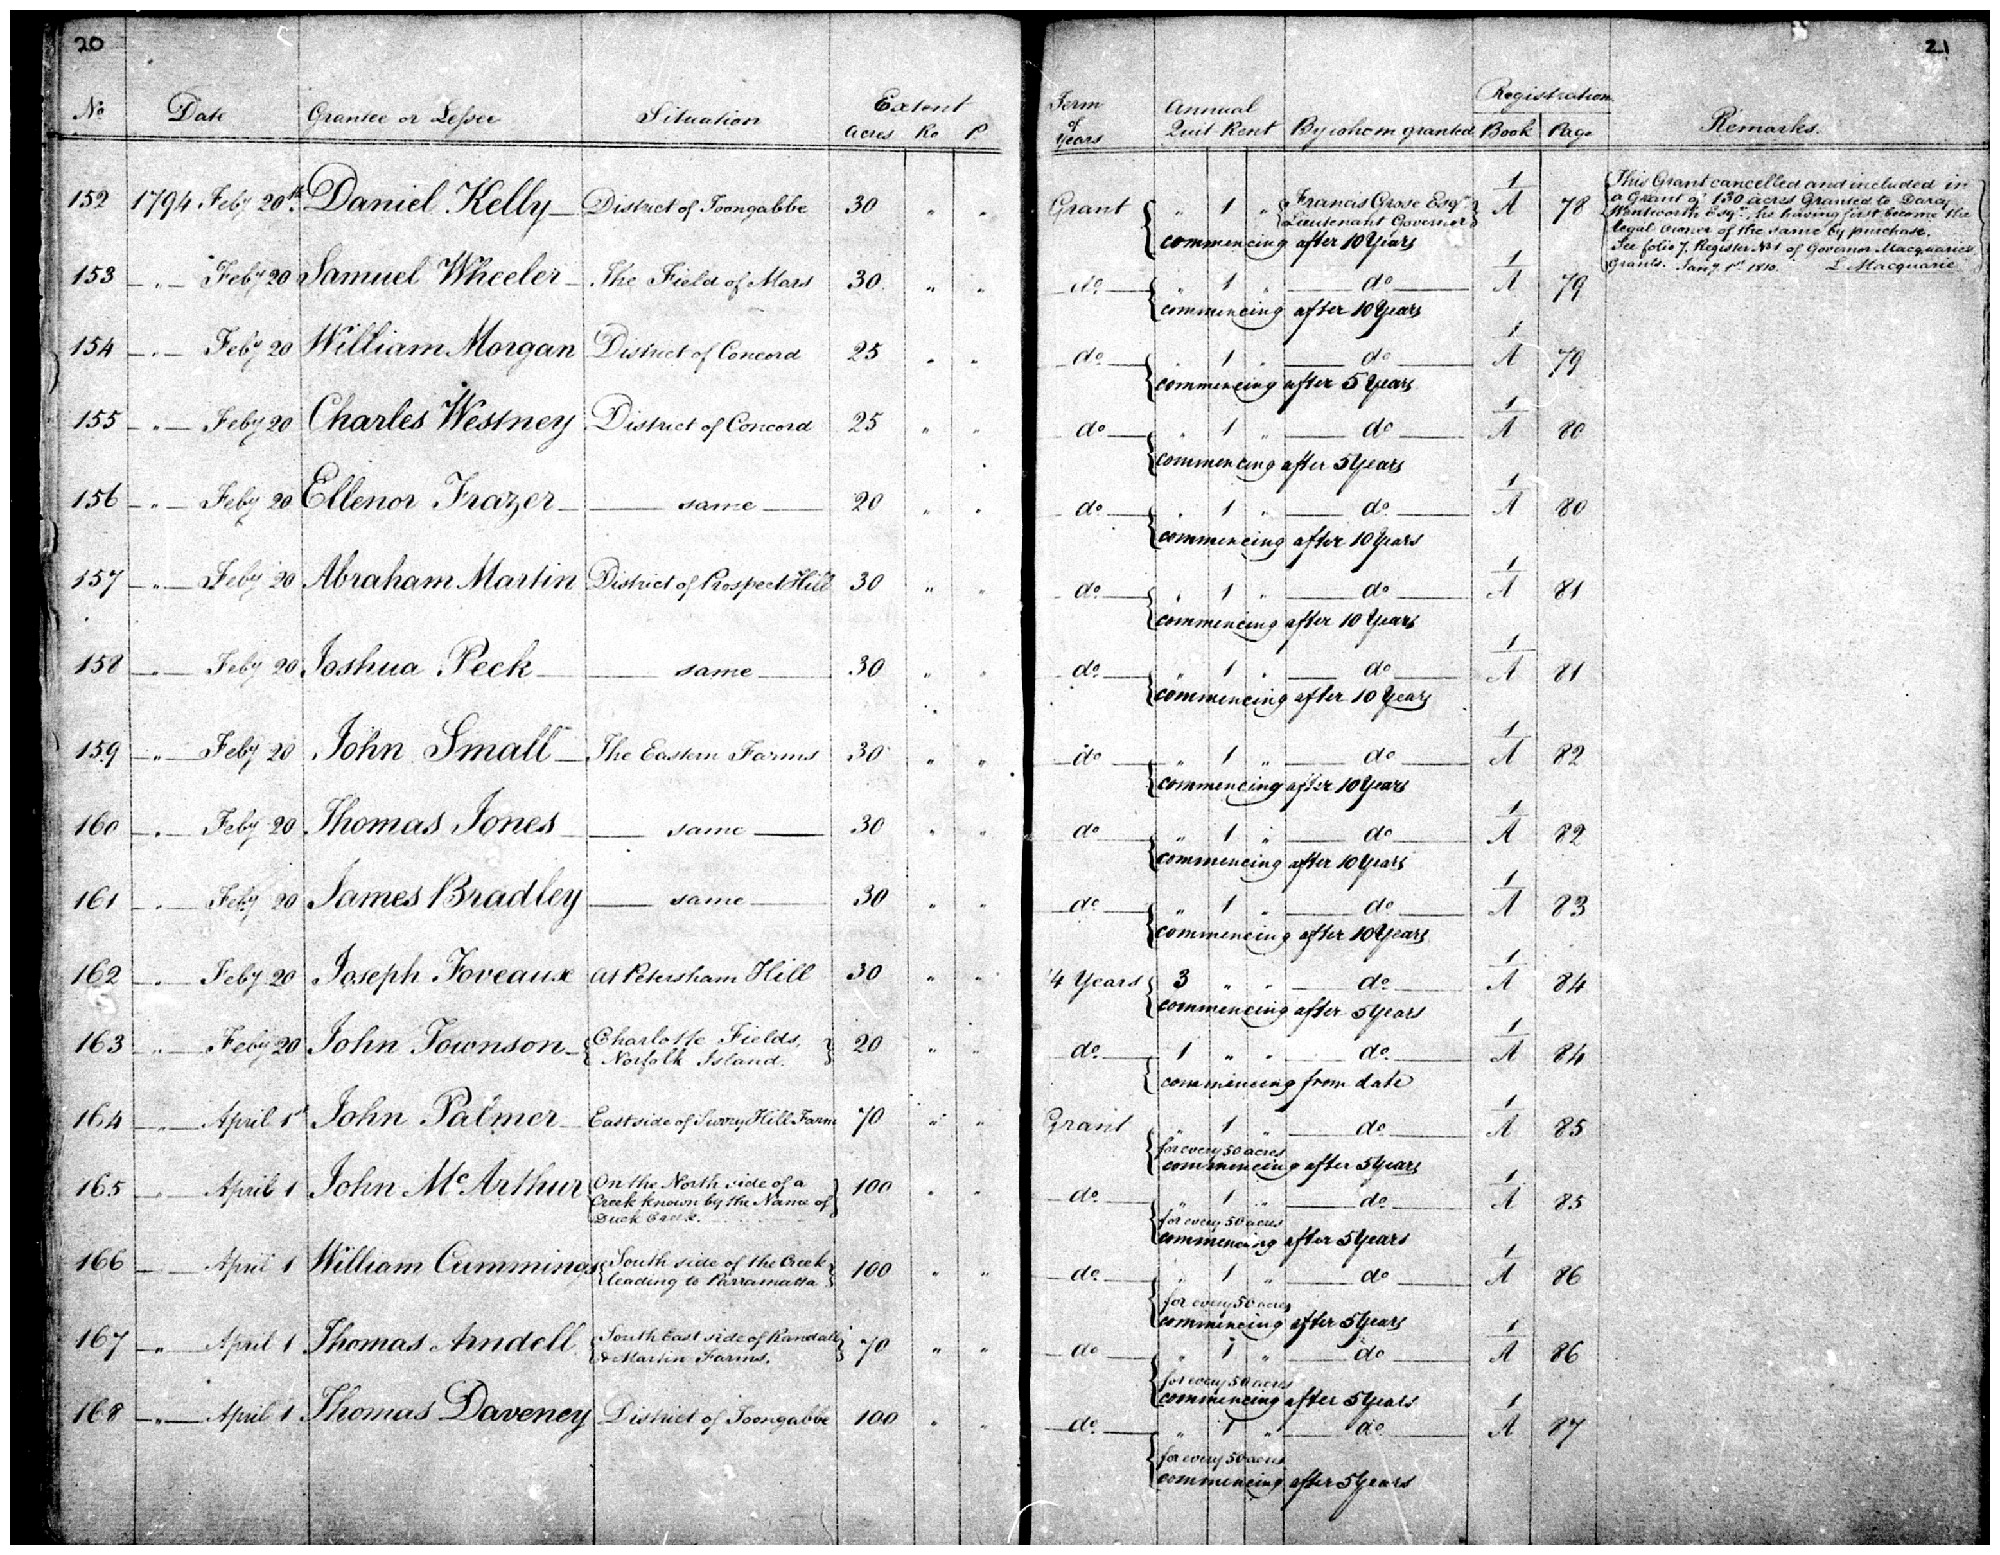 20
21
No Date Grantee or Lessee Situation Extent Acres Ro P. Term of Years Annual Quit Rent By whom granted Registration Book Page Remarks.
152 1794 Feby 20th Daniel Kelly District of Toongabbe 30 " " Grant " 1 " Francis Grose Esqr. Lieutenant Governor 1/A 78
commencing after 10 Years
This Grant cancelled and included in
a Grant of 130 acres Granted to Darcy
Wentworth Esqr. he having first become the
legal owner of the same by purchase.
See folio 7. Register No 1 of Governor Macquarie's
Grants. Jany. 1st 1810. L Macquarie
153 " Feby 20 Samuel Wheeler The Field of Mars 30 " " do " 1 " do 1/A 79
commencing after 10 Years
154 " Feby 20 William Morgan District of Concord 25 " " do " 1 " do 1/A 79
commencing after 5 Years
155 " Feby 20 Charles Westney District of Concord 25 " " do " 1 " do 1/A 80
commencing after 5 Years
156 " Feby 20 Ellenor Frazer same 20 " " do " 1 " do 1/A 80
commencing after 10 Years
157 " Feby 20 Abraham Martin District of Prospect Hill 30 " " do " 1 " do 1/A 81
commencing after 10 Years
158 " Feby 20 Joshua Peck same 30 " " do " 1 " do 1/A 81
commencing after 10 Years
159 " Feby 20 John Small The Eastern Farms 30 " " do " 1 " do 1/A 82
commencing after 10 Years
160 " Feby 20 Thomas Jones same 30 " " do " 1 " do 1/A 82
commencing after 10 Years
161 " Feby 20 James Bradley same 30 " " do " 1 " do 1/A 83
commencing after 10 Years
162 " Feby 20 Joseph Foveaux At Petersham Hill 30 " " 14 Years 3 " " do 1/A 84
commencing after 5 Years
163 " Feby 20 John Townson Charlotte Fields, Norfolk Island. 20 " " do 1 " " do 1/A 84
commencing from date
164 " April 1st John Palmer East side of Surry Hill Farm 70 " " Grant " 1 " do 1/A 85
for every 50 acres
commencing after 5 Years
165 " April 1 John McArthur On the North side of a Creek known by the Name of Duck Creek. 100 " " do " 1 " do 1/A 85
for every 50 acres
commencing after 5 Years
166 " April 1 William Cummings South side of the Creek leading to Parramatta 100 " " do " 1 " do 1/A 86
for every 50 acres
commencing after 5 Years
167 " April 1 Thomas Arndell South East side of Randall & Martin Farms. 70 " " do " 1 " do 1/A 86
for every 50 acres
commencing after 5 Years
168 " April 1 Thomas Daveney District of Toongabbe 100 " " do " 1 " do 1/A 87
for every 50 acres
commencing after 5 Years